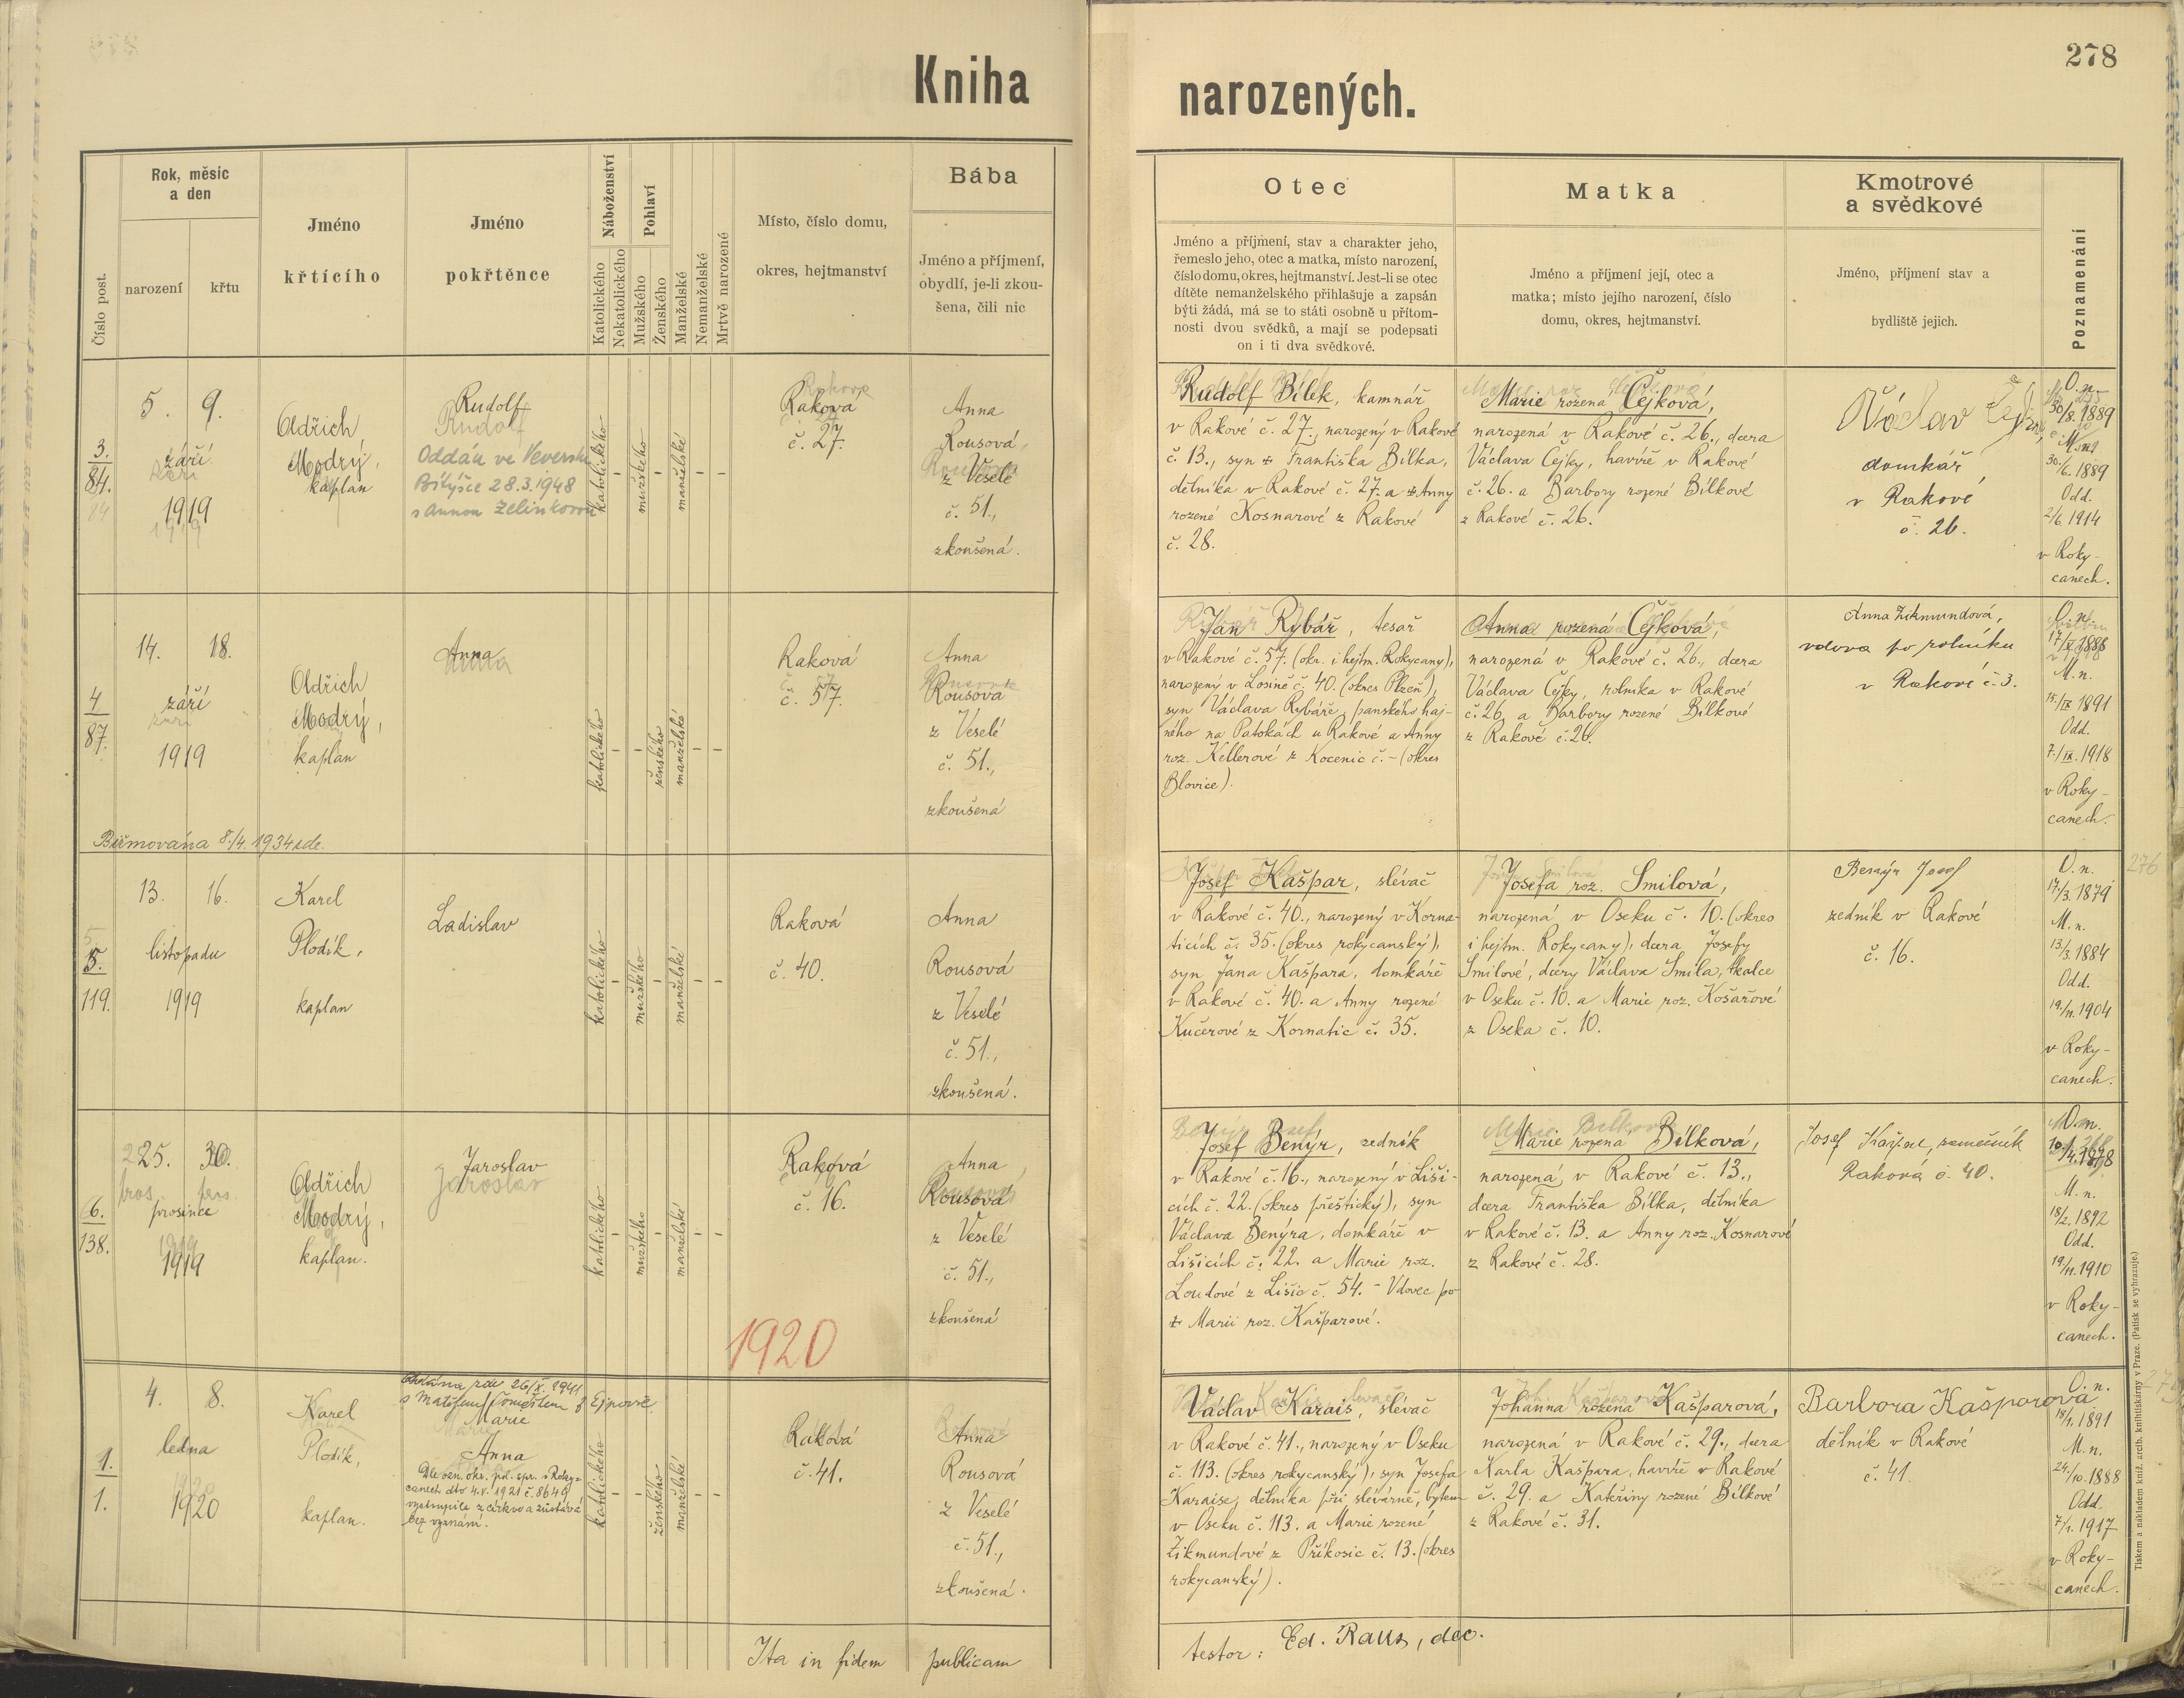 278
Kniha
narozených.
Číslo post.
Rok, měsíc
a den
narození
křtu
Jméno
křtícího
Jméno
pokřtěnce
Náboženství
Katolického
Nekatolického
Pohlaví
Mužského
Ženského
Manželské
Nemanželské
Mrtvě narozené
Místo, číslo domu,
okres, hejtmanství
Bába
Jméno a příjmení,
obydlí, je-li zkou-
šena, čili nic
Otec
Jméno a příjmení, stav a charakter jeho,
řemeslo jeho, otec a matka, místo narození,
číslo domu, okres, hejtmanství. Jest-li se otec
dítěte nemanželského přihlašuje a zapsán
býti žádá, má se to státi osobně u přítom-
nosti dvou svědků, a mají se podepsati
on i ti dva svědkové.
Matka
Jméno a příjmení její, otec a
matka; místo jejího narození, číslo
domu, okres, hejtmanství.
Kmotrové
a svědkové
Jméno, příjmení stav a
bydliště jejich.
Poznamenání
3.
84.
5. 9.
září
1919
Oldřich
Modrý,
kaplan
Rudolf
Oddán ve Veverské
Bítýšce 28.3.1948
s Annou Zelinkovou
katolického
-
mužského
-
manželské
-
-
Raková
č. 27.
Anna
Rousová,
z Veselé
č. 51.,
zkoušená.
Rudolf Bílek, kamnář
v Rakové č. 27., narozený v Rakové
č. 13., syn + Františka Bílka,
dělníka v Rakové č. 27. a + Anny
rozené Kosnarové z Rakové
č. 28.
Marie rozená Čejková,
narozená v Rakové č. 26., dcera
Václava Čejky, havíře v Rakové
č. 26. a Barbory rozené Bílkové
z Rakové č. 26.
Václav Čejka,
domkář
v Rakové
č. 26.
O. n.
30/8. 1889
M. n.
30./6. 1889
Odd.
2/6. 1914
v Roky-
canech.
4
87.
14. 18.
září
1919
Oldřich
Modrý,
kaplan
Anna
katolického
-
-
ženského
manželské
-
-
Raková
č. 57.
Anna
Rousová
z Veselé
č. 51.,
zkoušená
Biřmována 8./4. 1934 zde.
Jan Rybář, tesař
v Rakové č. 57. (okr. i hejtm. Rokycany),
narozený v Losině č. 40. (okres Plzeň),
syn Václava Rybáře, panského haj-
ného na Patokách u Rakové a Anny
roz. Kellerové z Kocenic č. - (okres
Blovice).
Anna rozená Čejková,
narozená v Rakové č. 26., dcera
Václava Čejky, rolníka v Rakové
č. 26. a Barbory rozené Bílkové
z Rakové č. 26.
Anna Zikmundová,
vdova po rolníku
v Rakové č. 3.
O. n.
M. n.
15./IX 1891
Odd.
7./IX. 1918
v Roky-
canech.
5.
119.
13. 16.
listopadu
1919
Karel
Plodík,
kaplan
Ladislav
katolického
-
mužského
-
manželské
-
-
Raková
č. 40.
Anna
Rousová
z Veselé
č. 51.,
zkoušená.
Josef Kašpar, slévač
v Rakové č. 40., narozený v Korna-
ticích č. 35. (okres rokycanský),
syn Jana Kašpara, domkáře
v Rakové č. 40. a Anny rozené
Kučerové z Kornatic č. 35.
Josefa roz. Smilová,
narozená v Oseku č. 10. (okres
i hejtm. Rokycany), dcera Josefy
Smilové, dcery Václava Smila, tkalce
v Oseku č. 10. a Marie roz. Košařové
z Oseka č. 10.
Benýr Josef
zedník v Rakové
č. 16.
O. n.
17/3. 1879
M. n.
13/3. 1884
Odd.
19./11. 1904
v Roky-
canech.
276
6.
138.
25. 30.
prosince
1919
Oldřich
Modrý,
kaplan.
Jaroslav
katolického
-
mužského
-
manželské
-
-
Raková
č. 16.
Anna
Rousová
z Veselé
č. 51.,
zkoušená
Josef Benýr, zedník
v Rakové č. 16., narozený v Liši-
cích č. 22. (okres přeštický), syn
Václava Benýra, domkáře v
Lišicích č. 22. a Marie roz.
Loudové z Lišic č. 54. - Vdovec po
+ Marii roz. Kašparové.
Marie rozená Bílková,
narozená v Rakové č. 13.,
dcera Františka Bílka, dělníka
v Rakové č. 13. a Anny roz. Kosnarové
z Rakové č. 28.
Josef Kašpar,
Raková č. 40.
O. n.
M. n.
18/2. 1892
Odd.
19/11. 1910
v Roky-
canech.
1920
1.
1.
4. 8.
ledna
1920
Karel
Plodík,
kaplan.
Oddána zde 26/X. 1941
s Matějem z Ejpovic.
Marie
Anna
Dle ozn. okr. pol. spr. v Roky-
canech dto 4.V. 1921 č. 8649
vystoupila z církve a zůstává
bez vyznání.
katolického
-
-
ženského
manželské
-
-
Raková
č. 41.
Anna
Rousová
z Veselé
č. 51.,
zkoušená.
Václav Karais, slévač
v Rakové č. 41., narozený v Oseku
č. 113. (okres rokycanský), syn Josefa
Karaise, dělníka při slévárně, bytem
v Oseku č. 113. a Marie rozené
Zikmundové z Příkosic č. 13. (okres
rokycanský).
Johanna rozená Kašparová,
narozená v Rakové č. 29., dcera
Karla Kašpara, havíře v Rakové
č. 29. a Kateřiny rozené Bílkové
z Rakové č. 31.
Barbora Kašparová
dělník v Rakové
č. 41.
O. n.
18/1. 1891
M. n.
24./10. 1888
Odd.
7/1. 1917
v Roky-
canech.
Ita in fidem publicam
testor: Ed. Raus, dec.
Tiskem a nákladem kníž. arcib. knihtiskárny v Praze. (Patisk se vyhrazuje.)